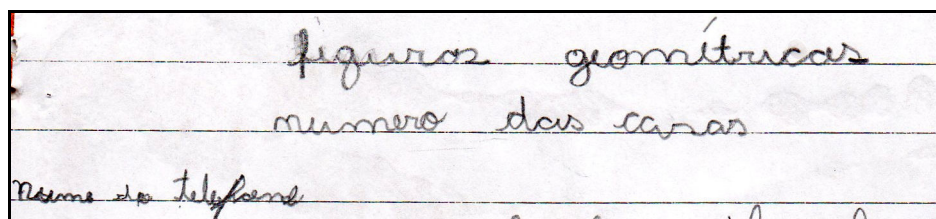 figuras geométricas
numero das casas
do telefone